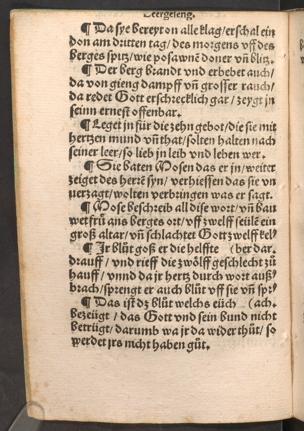 Leergeleng.
¶ Da sye bereyt on alle klag / erschal ein
don am dritten tag / des morgens vff des
berges spitz / wie posawnē doner vñ blitz.
¶ Der berg brandt vnd erhebet auch /
da von gieng dampff vñ grosser rauch /
da redet Gott erschrecklich gar / zeygt jn
seinn ernest offenbar.
¶ Leget jn für die zehn gebot / die sie mit
hertzen mund vñ that / solten halten nach
seiner leer / so lieb jn leib vnd leben wer.
¶ Sie baten Mosen das er jn / weiter
zeiget des herrē syn / verhiessen das sie vn
verzagt / wolten verbringen was er sagt.
¶ Mose beschreib all dise wort / vñ bau
wet frü ans berges ort / vff zwelff seulē ein
groß altar / vñ schlachtet Gott zwelff kel⸗
¶ Jr blüt goß er die helffte (ber dar.
drauff / vnd rieff die zwölff geschlecht zů
hauff / vnnd da jr hertz durch wort auß⸗
brach / sprengt er auch blüt vff sie vñ sp⸗
¶ Das ist dz blüt welchs eüch (ach.
bezeügt / das Gott vnd sein bund nicht
betriigt / darumb wa jr da wider thüt / so
werdet jrs nicht haben güt.